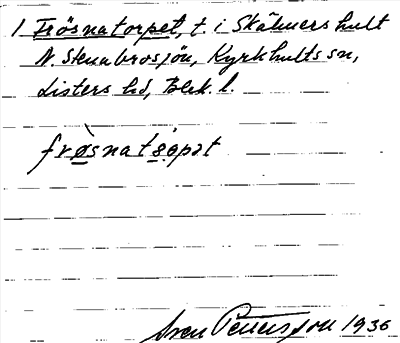 1 Frösnatorpet, t. i Skälmershult
N. Stenabrosjön, Kyrkhults sn,
Listers hd, Blek. l.
frø̀snatɔrpət
Sven Petersson 1936